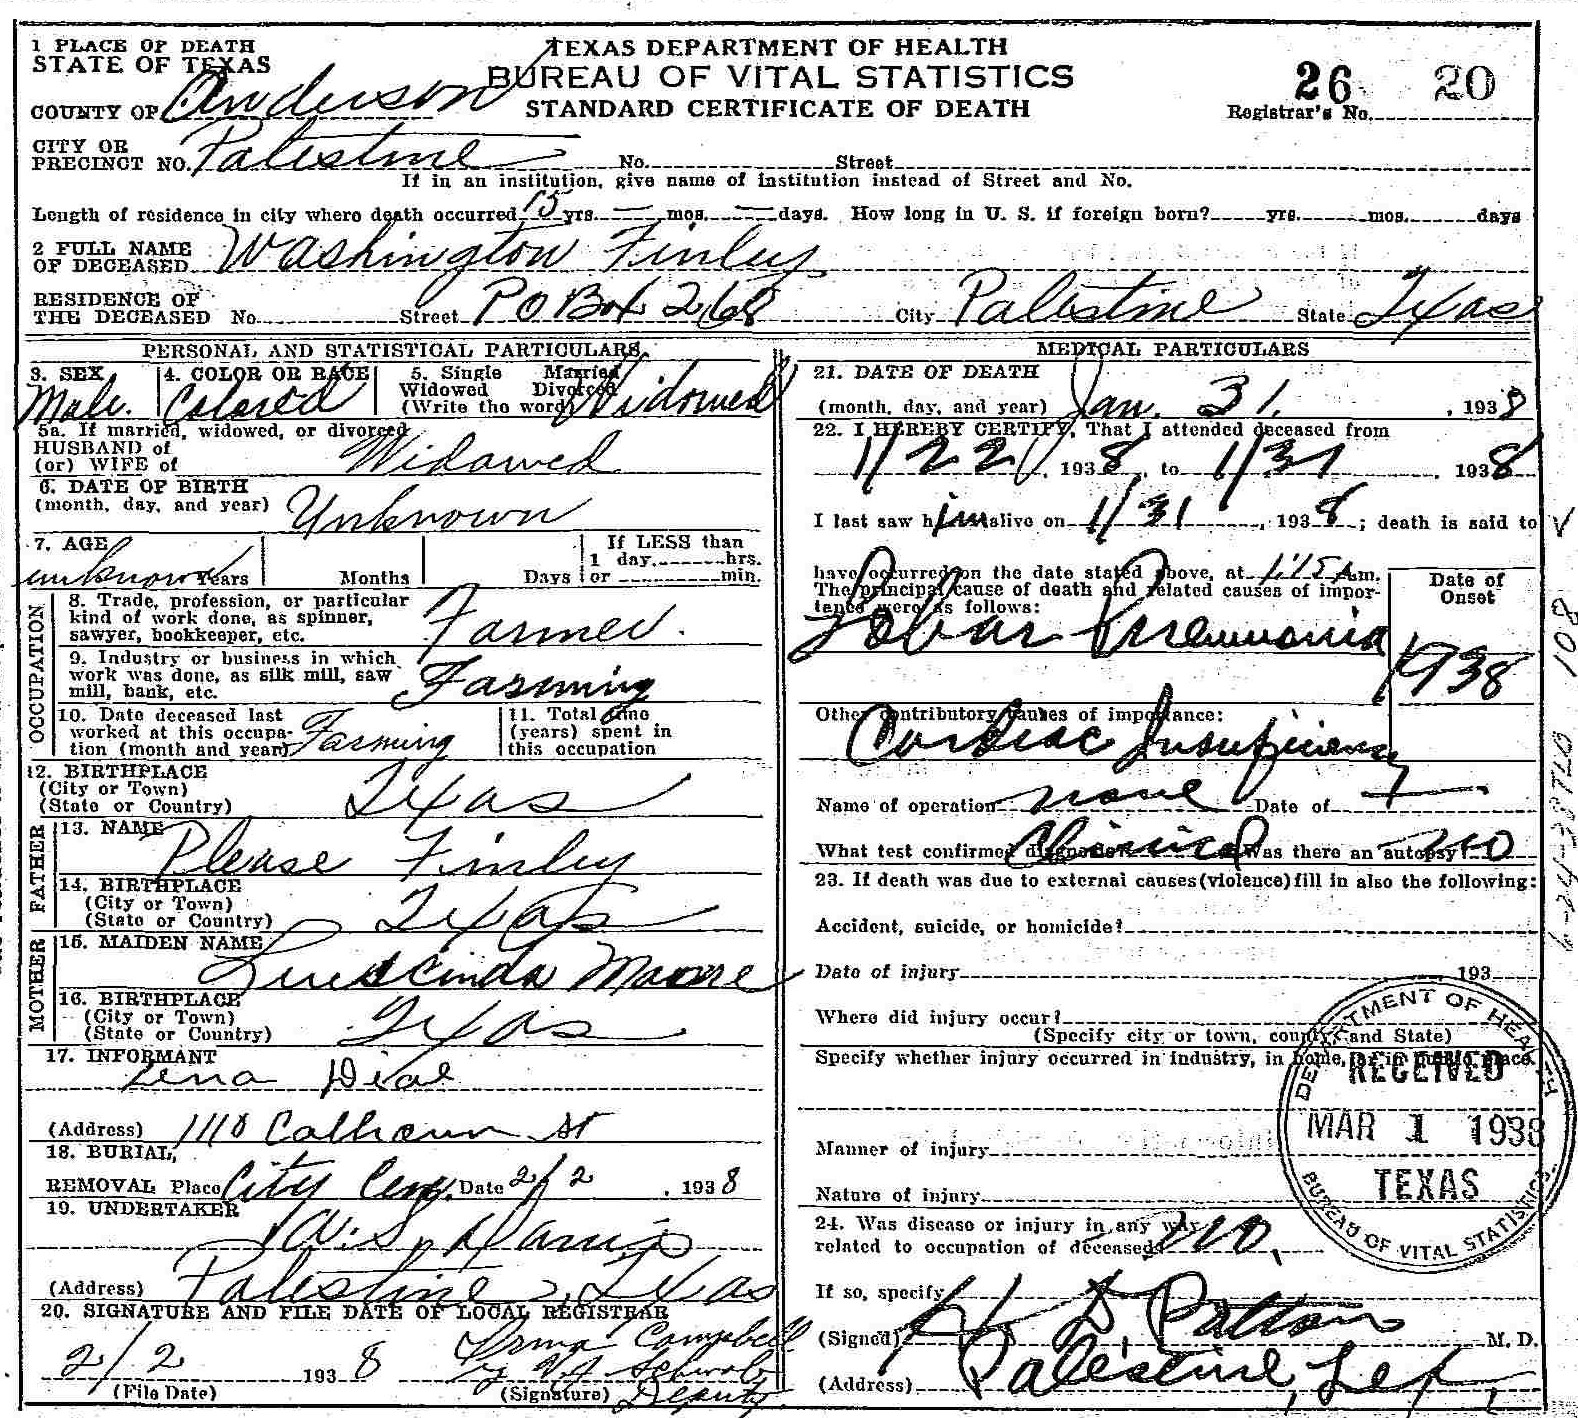 1 PLACE OF DEATH
STATE OF TEXAS
COUNTY OF Anderson
TEXAS DEPARTMENT OF HEALTH
BUREAU OF VITAL STATISTICS
STANDARD CERTIFICATE OF DEATH
26 20
Registrar's No.
CITY OR
PRECINCT NO. Palestine No. Street
If in an institution, give name of institution instead of Street and No.
Length of residence in city where death occurred 15 yrs. — mos. — days. How long in U. S. if foreign born? yrs. mos. days
2 FULL NAME
OF DECEASED Washington Finley
RESIDENCE OF
THE DECEASED No. Street PO Box 268 City Palestine State Texas
PERSONAL AND STATISTICAL PARTICULARS
3. SEX
Male.
4. COLOR OR RACE
Colored
5. Single Married
Widowed Divorced
(Write the word) Widowed
5a. If married, widowed, or divorced
HUSBAND of
(or) WIFE of Widowed
6. DATE OF BIRTH
(month, day, and year) Unknown
7. AGE
unknown Years Months Days
If LESS than
1 day, hrs.
or min.
OCCUPATION
8. Trade, profession, or particular
kind of work done, as spinner,
sawyer, bookkeeper, etc. Farmer.
9. Industry or business in which
work was done, as silk mill, saw
mill, bank, etc. Farming
10. Date deceased last
worked at this occupa-
tion (month and year) Farming
11. Total time
(years) spent in
this occupation
12. BIRTHPLACE
(City or Town)
(State or Country) Texas
FATHER
13. NAME
Please Finley
14. BIRTHPLACE
(City or Town)
(State or Country) Texas
MOTHER
15. MAIDEN NAME
Moore
16. BIRTHPLACE
(City or Town)
(State or Country) Texas
17. INFORMANT
Lena Dial
(Address) 1110 Calhoun St
18. BURIAL,
REMOVAL Place City Cem. Date 2/2, 1938
19. UNDERTAKER
Davis
(Address) Palestine, Texas
20. SIGNATURE AND FILE DATE OF LOCAL REGISTRAR
2/2 1938 Irma Campbell
by Deputy
(File Date) (Signature)
MEDICAL PARTICULARS
21. DATE OF DEATH
(month, day, and year) Jan. 31, 1938
22. I HEREBY CERTIFY, That I attended deceased from
1/22/, 1938, to 1/31, 1938
I last saw him alive on 1/31, 1938; death is said to
have occurred on the date stated above, at 1:15 A.m.
The principal cause of death and related causes of impor-
tance were as follows:
Date of
Onset
Lobar Pneumonia
1938
Other contributory causes of importance:
Cardiac Insuficiency
Name of operation none Date of —
What test confirmed diagnosis? Clinical Was there an autopsy? no
23. If death was due to external causes (violence) fill in also the following:
Accident, suicide, or homicide?
Date of injury 193
Where did injury occur?
(Specify city or town, county and State)
Specify whether injury occurred in industry, in home, or in public place.
Manner of injury
Nature of injury
24. Was disease or injury in any way
related to occupation of deceased? no.
If so, specify
(Signed) H D Patton M. D.
(Address) Palestine, Tex,
DEPARTMENT OF HEALTH
RECEIVED
MAR 1 1938
TEXAS
BUREAU OF VITAL STATISTICS
108